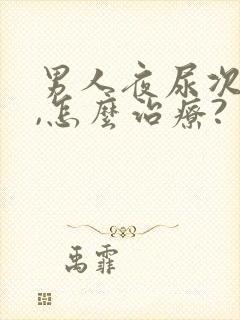 男人夜尿次
,怎麼治療?
禹霏